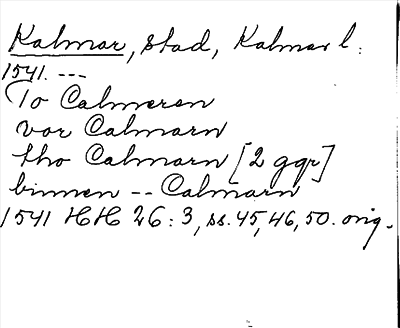 Kalmar, stad, Kalmar l.
1541. ---
To Calmeren
vor Calmarn
tho Calmarn [2 ggr]
binnen -- Calmarn
1541 HH 26: 3, ss. 45, 46, 50. orig.